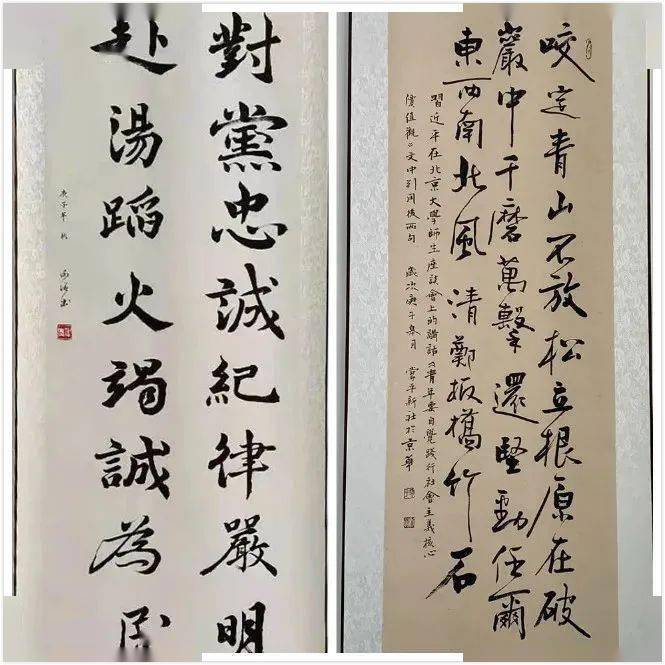 對黨忠誠紀律嚴明
赴湯蹈火竭誠為民
庚子年秋
咬定青山不放松立根原在破
巖中千磨萬擊還堅勁任爾
東西南北風 清鄭板橋竹石
習近平在北京大學師生座談會上的講話《青年要自覺踐行社會主義核心
價值觀》文中引用後兩句 歲次庚子 於京華